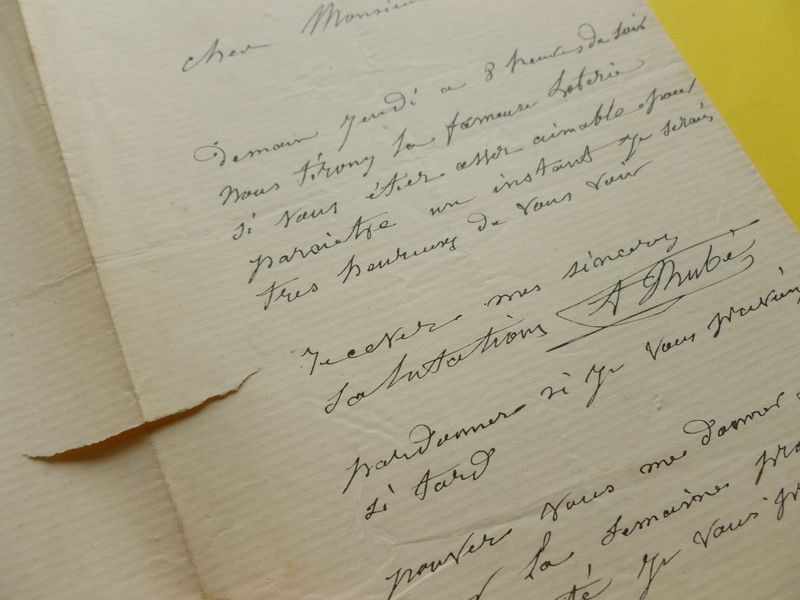 cher Monsieur
Demain Jeudi a 8 heures du soir
nous tirons la fameuse Loterie
si vous étier asser aimable pour
paroietre un instant je serais
tres heureux de vous voir
recever mes sinceres
salutations A Thubé
pardonner si je vous previens
si tard
pouver vous me donner
la semaine pro
té je vous pr